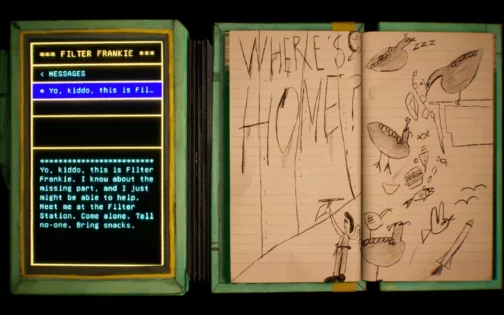 *** FILTER FRANKIE ***
< MESSAGES
* Yo, kiddo, this is Fil…
**********************
Yo, kiddo, this is Filter
Frankie. I know about the
missing part, and I just
might be able to help.
Meet me at the Filter
Station. Come alone. Tell
no-one. Bring snacks.
WHERE'S
HOME?
zzz